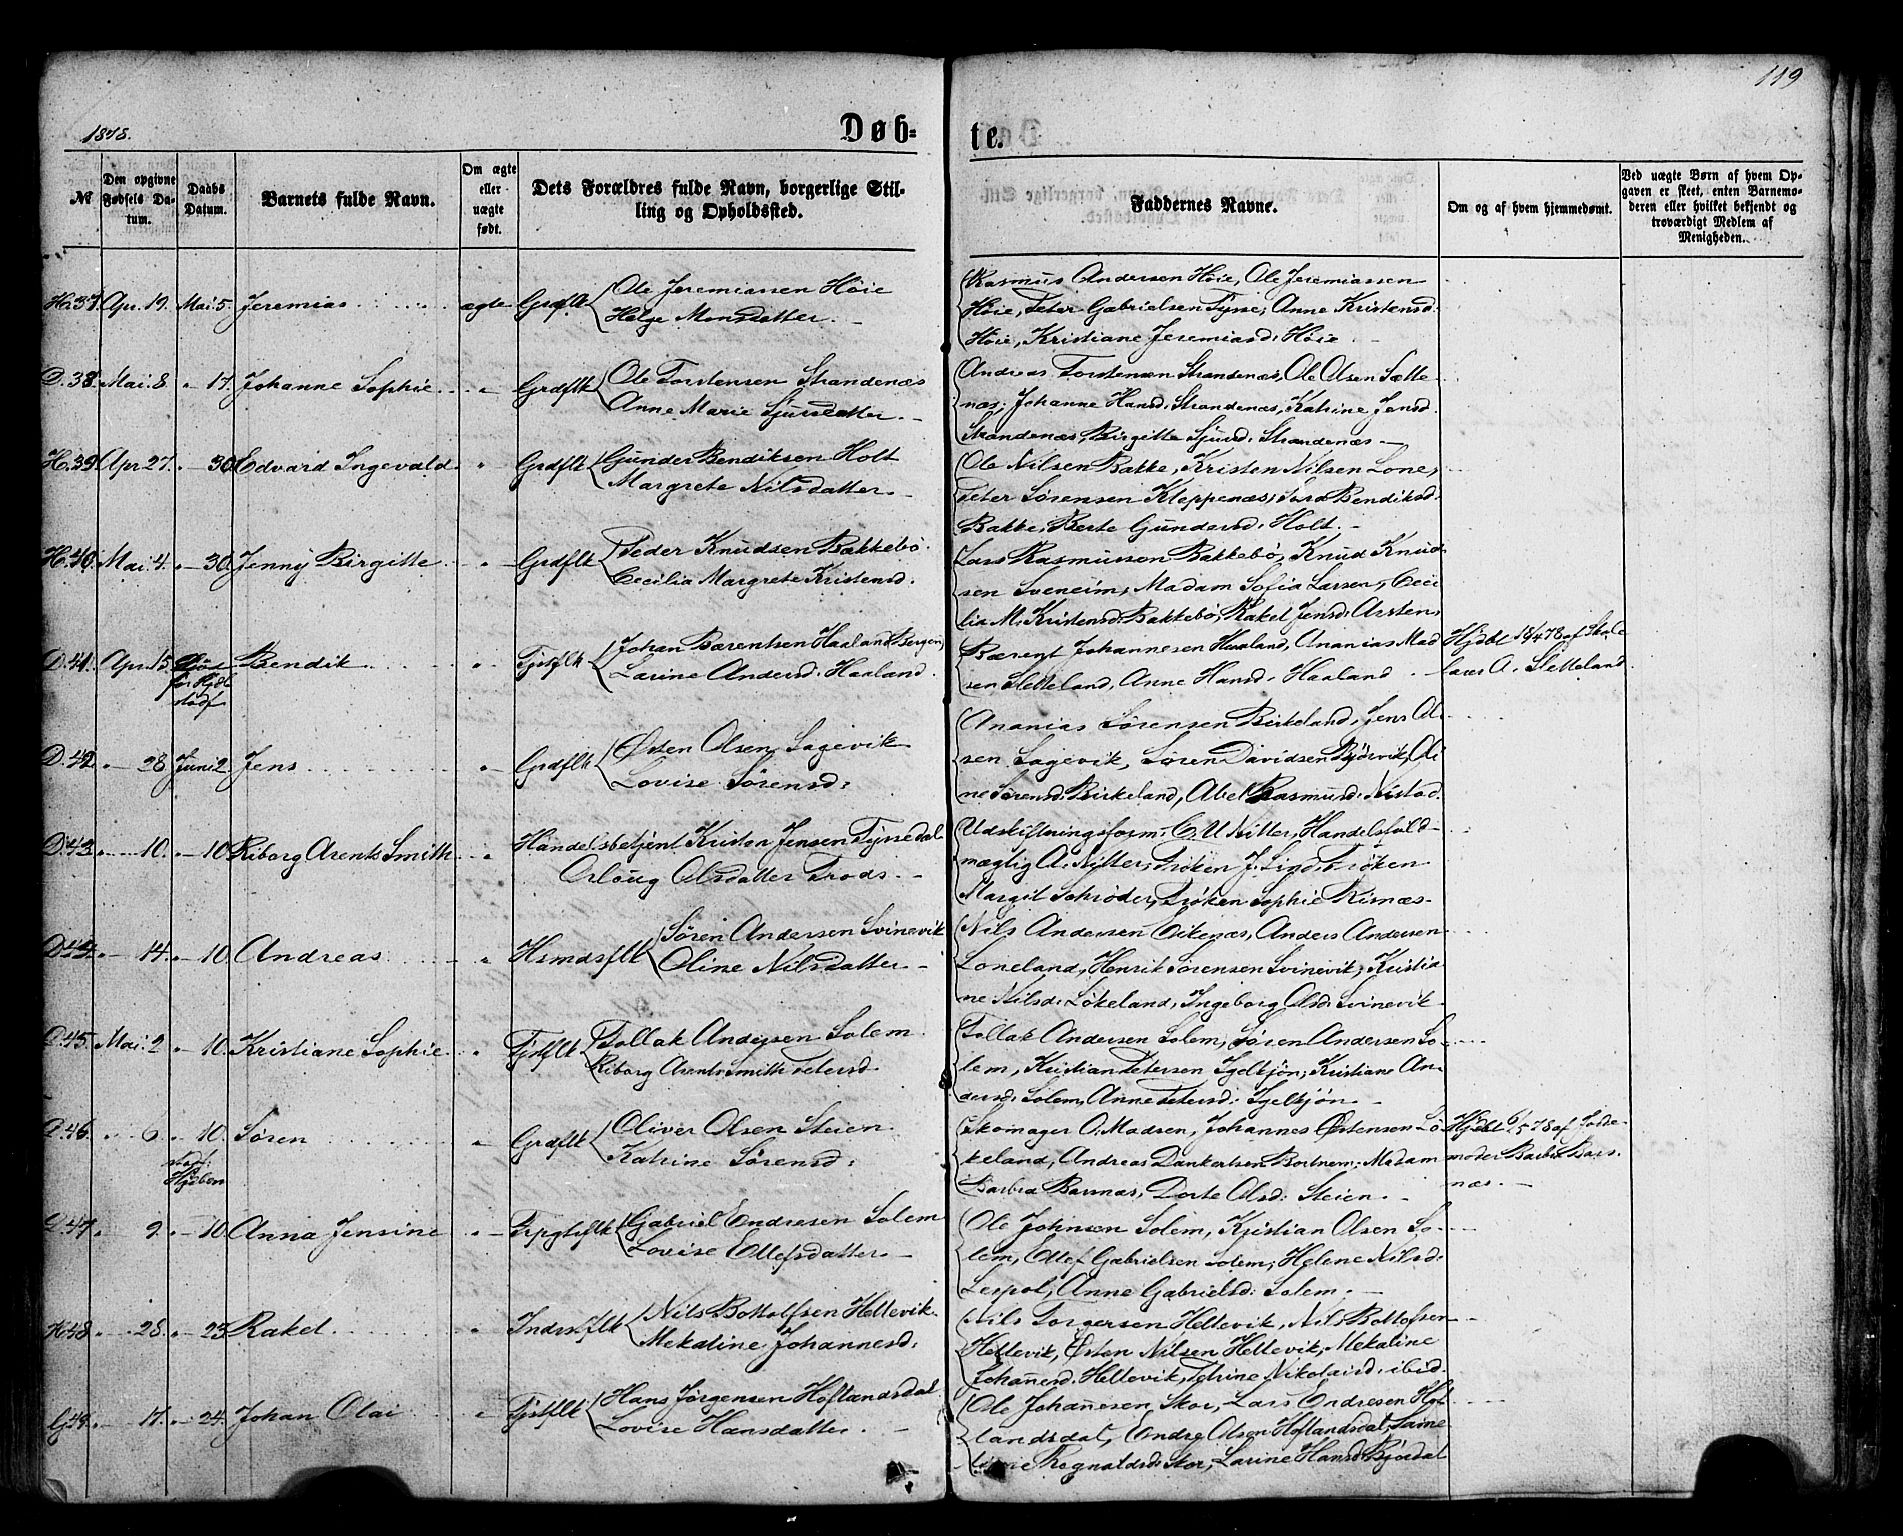 119
1878.
Døb=
te.
№
Den opgivne Fødsels Datum.
Daabs Datum.
Barnets fulde Navn.
Om ægte eller uægte født.
Dets Forældres fulde Navn, borgerlige Stilling og Opholdssted.
Faddernes Navne.
Om og af hvem hjemmedøbt.
Ved uægte Børn af hvem Opgaven er skeet, enten Barnemoderen eller hvilket bekjendt og troværdigt Medlem af Menigheden.
H. 37. Apr. 19. Mai 5. Jeremias ægte Grdflk Ole Jeremiassen Höie
Helge Monsdatter.
Rasmus Andersen Höie, Ole Jeremiassen
Höie, Peter Gabrielsen Tysse, Anne Kristensd.
Höie, Kristiane Jeremiasd: Höie
D. 38. Mai 8. " 17. Johanne Sophie " Grdflk Ole Torstensen Strandenæs
Anne Marie Sjursdatter.
Andreas Torstensen Strandenæs, Ole Olsen Sætte
næs, Johanne Hansd: Strandenæs, Katrine Jensd.
Strandenæs, Birgitte Sjursd: Strandenæs
H. 39. Apr. 27. " 30. Edvard Ingevald " Grdflk Gunder Bendiksen Holt
Margrete Nilsdatter
Ole Nilsen Bakke, Kristen Nilsen Lone,
Peter Sørensen Kleppenæs, Bendiksd.
Bakke, Berte Gundersd: Holt.
H. 40. Mai 4. " 30. Jenny Birgitte " Grdflk Peder Knudsen Bakkebö.
Cecilia Margrete Kristensd.
Lars Rasmussen Bakkebö, Knud Knud
sen Sveneim, Madam Sofia Larsen, Ceci
lia M. Kristensd: Bakkebö, Rakel Jensd:
D. 41. Apr. 15. Bendik " Tjstflk Johan Bærentsen Haaland (Bergen)
Larine Andersd: Haaland
Bærent Johannesen Haaland, Ananias Mad
sen Sletteland, Anne Hansd. Haaland
Hjdbt 15/4 78 af Skole
lærer A. Sletteland.
D. 42. " 28. Juni 2. Jens " Grdflk Østen Olsen Sagevik
Lovise Sørensd:
Ananias Sørensen Birkeland, Jens Ol
sen Sagevik, Sören Davidsen Oli
ne Sørensd: Birkeland, Abel Rasmusd: Nistad.
D. 43. " 10. " 10. Riborg Arents Smith " Handelsbetjent Kristen Jensen Tyssedal
Olsdatter Frods.
Udskiftningsform: C. U Nitter, Handelsfuld
mægtig A. Nitter, Frøken J. Lind, Frøken
Margit Schrøder, Frøken Sophie Risnæs
D. 44. " 14. " 10. Andreas " Hsmdsflk Søren Andersen Svinevik
Oline Nilsdatter
Nils Andersen Eikenæs, Anders Andersen
Loneland, Henrik Sørensen Svinevik, Kristia
ne Nilsd: Løkeland, Ingeborg Olsd: Svinevik
D. 45. Mai 2. " 10. Kristiane Sophie " Tjstflk Tollak Andersen Solem
Riborg Arents Smith Petersd.
Tollak Andersen Solem, Søren Andersen So
lem, Kristian Petersen Igelkjön, Kristiane An
dersd: Solem, Anne Petersd: Igelkjön
D. 46. " 6. " 10. Søren " Grdflk Oliver Olsen Steien
Katrine Sørensd:
Skomager O. Madsen, Johannes Østensen Lö
keland, Andreas Dankertsen Bortnem, Madam
Barbra Barsnæs, Dorte Olsd: Steien
Hjdbt 6/5 78 af Jorde
moder Barbra Bars
næs.
D. 47. " 9. " 10. Anna Jensine " Gabriel Endresen Solem
Lovise Ellefsdatter
Ole Johnsen Solem, Kristian Olsen So
lem, Ellef Gabrielsen Solem, Helene Nilsd:
Leipol, Anne Gabrielsd: Solem.
H. 48. " 28. " 23. Rakel " Indrstflk Nils Bottolfsen Hellevik
Mekaline Johannesd:
Nils Torgersen Hellevik, Nils Bottolfsen
Hellevik, Østen Nilsen Hellevik, Mekaline
Johanesd: Hellevik, Petrine Nikolaisd: ibid.
G. 49. " 17. " 24. Johan Olai " Tjstflk Hans Jørgensen Høflandsdal
Lovise Hansdatter
Ole Johanesen Skor, Lars Endresen Høf
landsdal, Endre Olsen Høflandsdal,
Rognaldsd: Skor, Larine Hansd: Bjordal